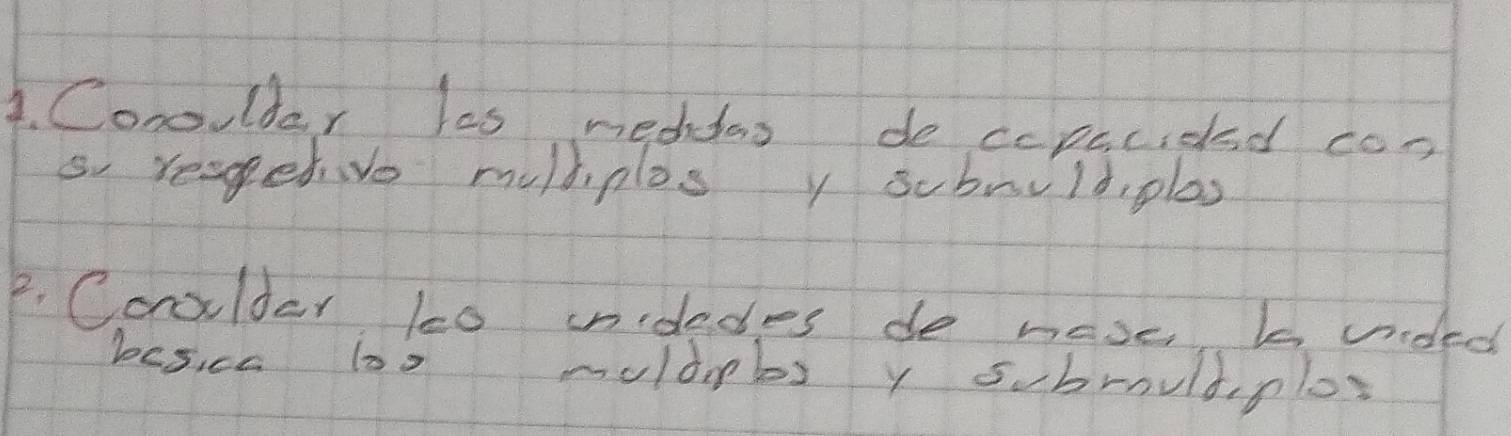 1. Consultar las medidas de capacidad con
su respectivo multiplos y submultiplos
2. Consultar las unidades de masa, la unidad
basica los multiplos y submultiplos